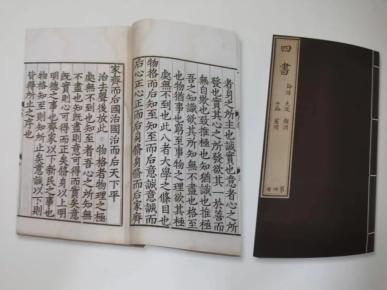 者身之所主也誠實也意者心之所
發也實其心之所發欲其一於善而
無自欺也致推極也知猶識也推極
吾之知識欲其所知無不盡也格至
也物猶事也窮至事物之理欲其極
處無不到也此八者大學之條目也
物格而后知至知至而后意誠意誠而
后心正心正而后身脩身脩而后家齊
家齊而后國治國治而后天下平
治去聲後放此 物格者物理之極
處無不到也知至者吾心之所知無
不盡也知既盡則意可得而實矣意
既實則心可得而正矣脩身以上明
明德之事也齊家以下新民之事也
物格知至則知所止矣意誠以下則
皆得所止之序也
四書
論語